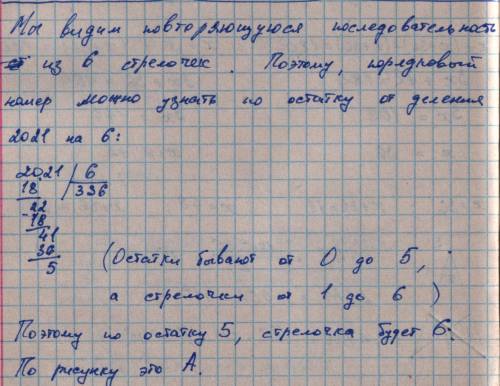 Мы видим повторяющуюся последовательность
из 6 стрелочек. Поэтому, порядковый
номер можно узнать по остатку от деления
2021 на 6:
2021 | 6
18 336
22
-18
41
36
5
(Остатки бывают от 0 до 5,
а стрелочки от 1 до 6)
Поэтому по остатку 5, стрелочка будет 6.
По рисунку это А.